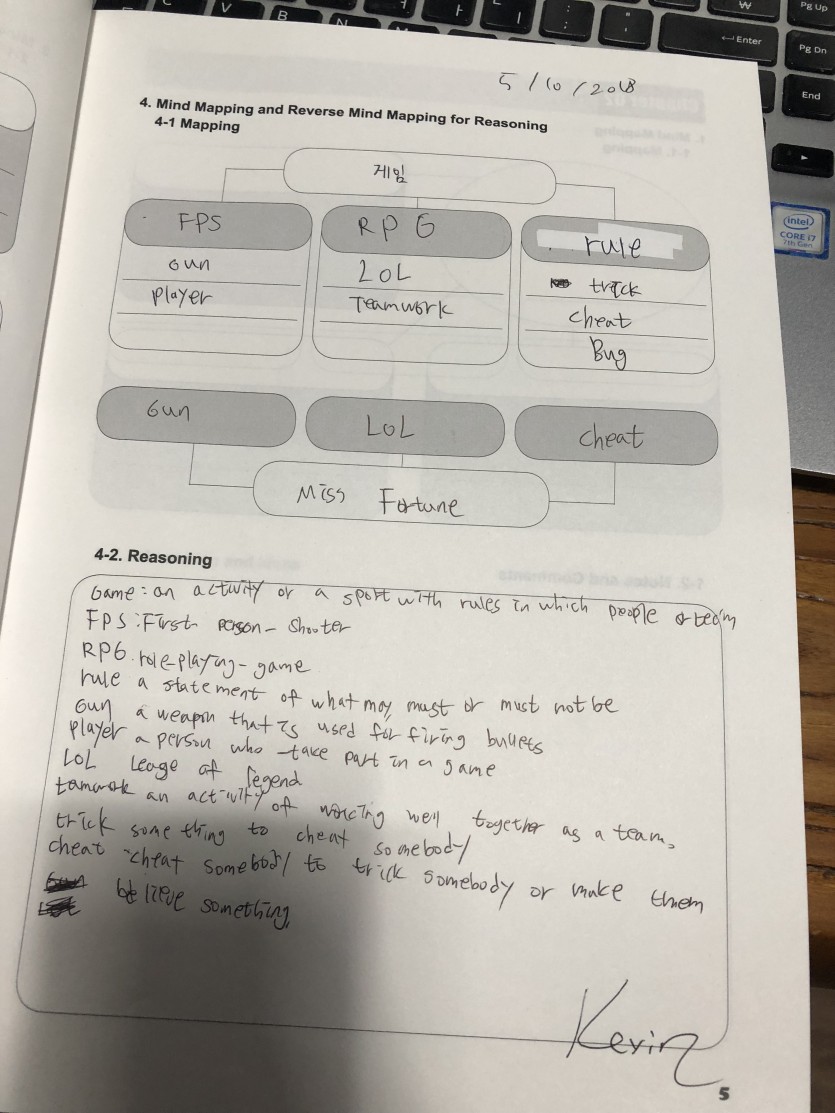 V
B
N
Pg Up
Enter
Pg Dn
End
intel
CORE i7
7th Gen
5/10/2018
4. Mind Mapping and Reverse Mind Mapping for Reasoning
4-1 Mapping
게임
FPS
RPG
rule
Gun
LOL
trick
player
Teamwork
cheat
Bug
Gun
LoL
cheat
Miss Fortune
4-2. Reasoning
Game : an activity or a sport with rules in which people or team
FPS : First person - Shooter
RPG. role-playing - game
rule a statement of what may, must or must not be
Gun a weapon that is used for firing bullets
player a person who take part in a game
LoL Leage of legend
tamwork an activity of working well together as a team.
trick something to cheat somebody
cheat cheat somebody to trick somebody or make them
believe something.
Kevin
5